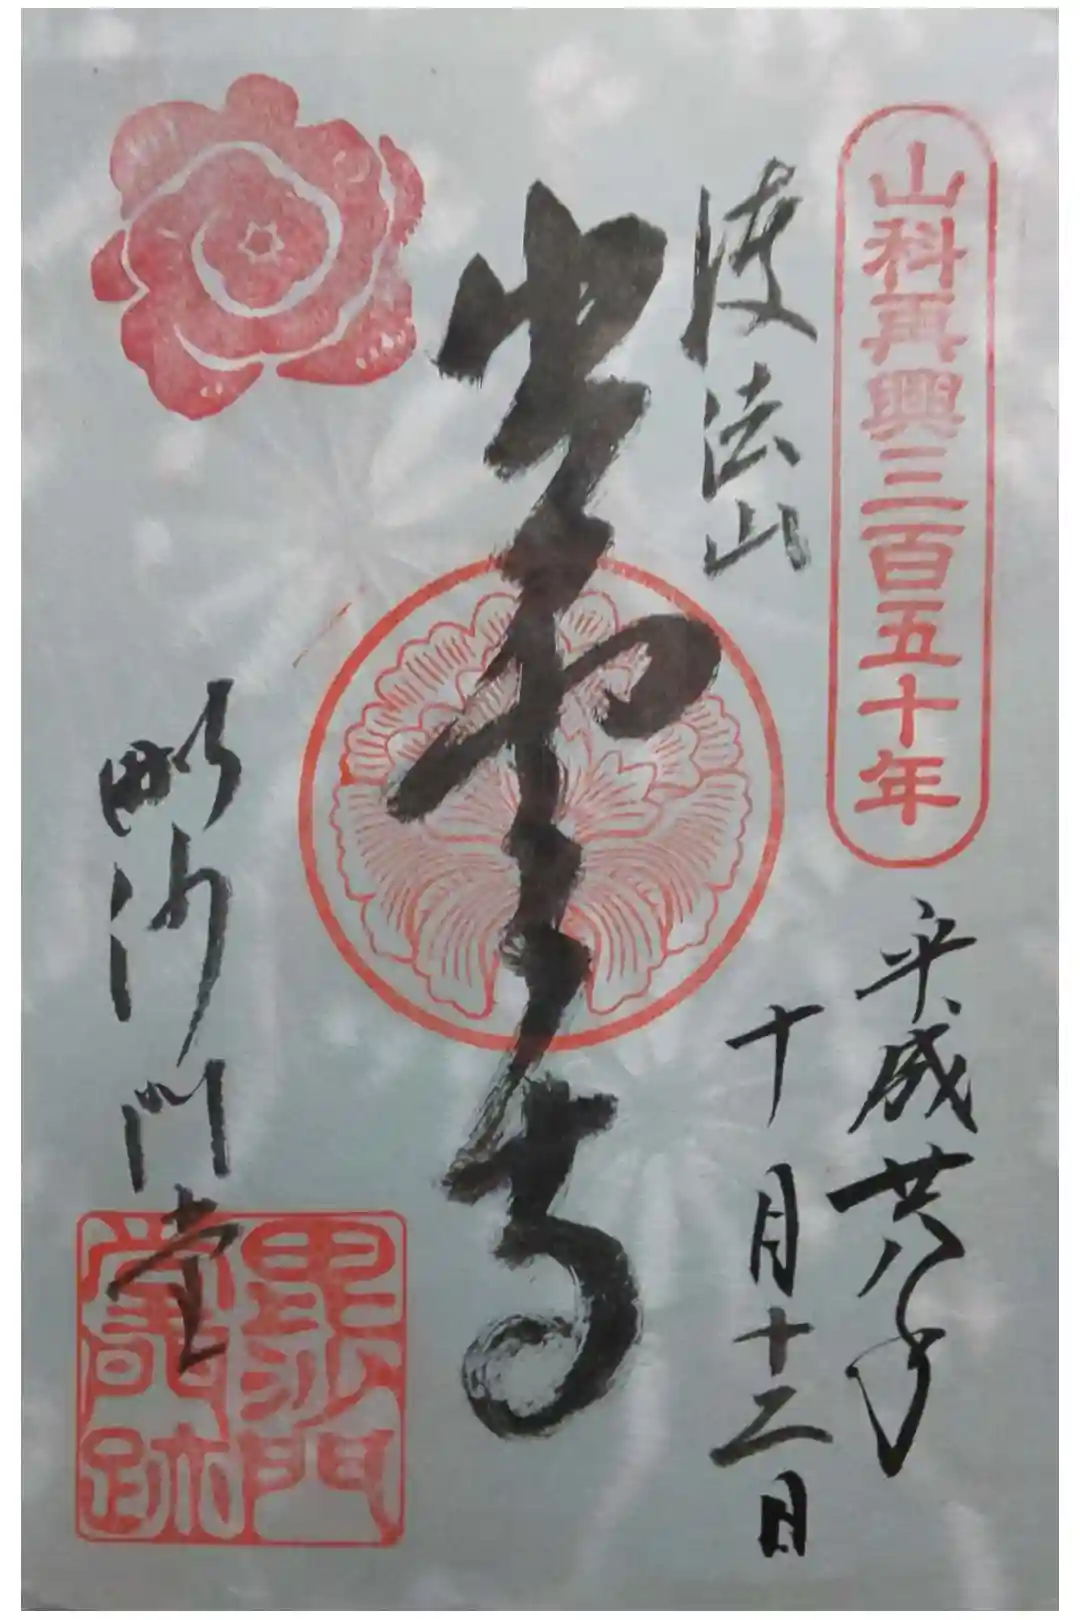 山科再興三百五十年
平成廿八年
十月十二日
護法山
出雲寺
毗沙門堂
毘沙門
堂跡